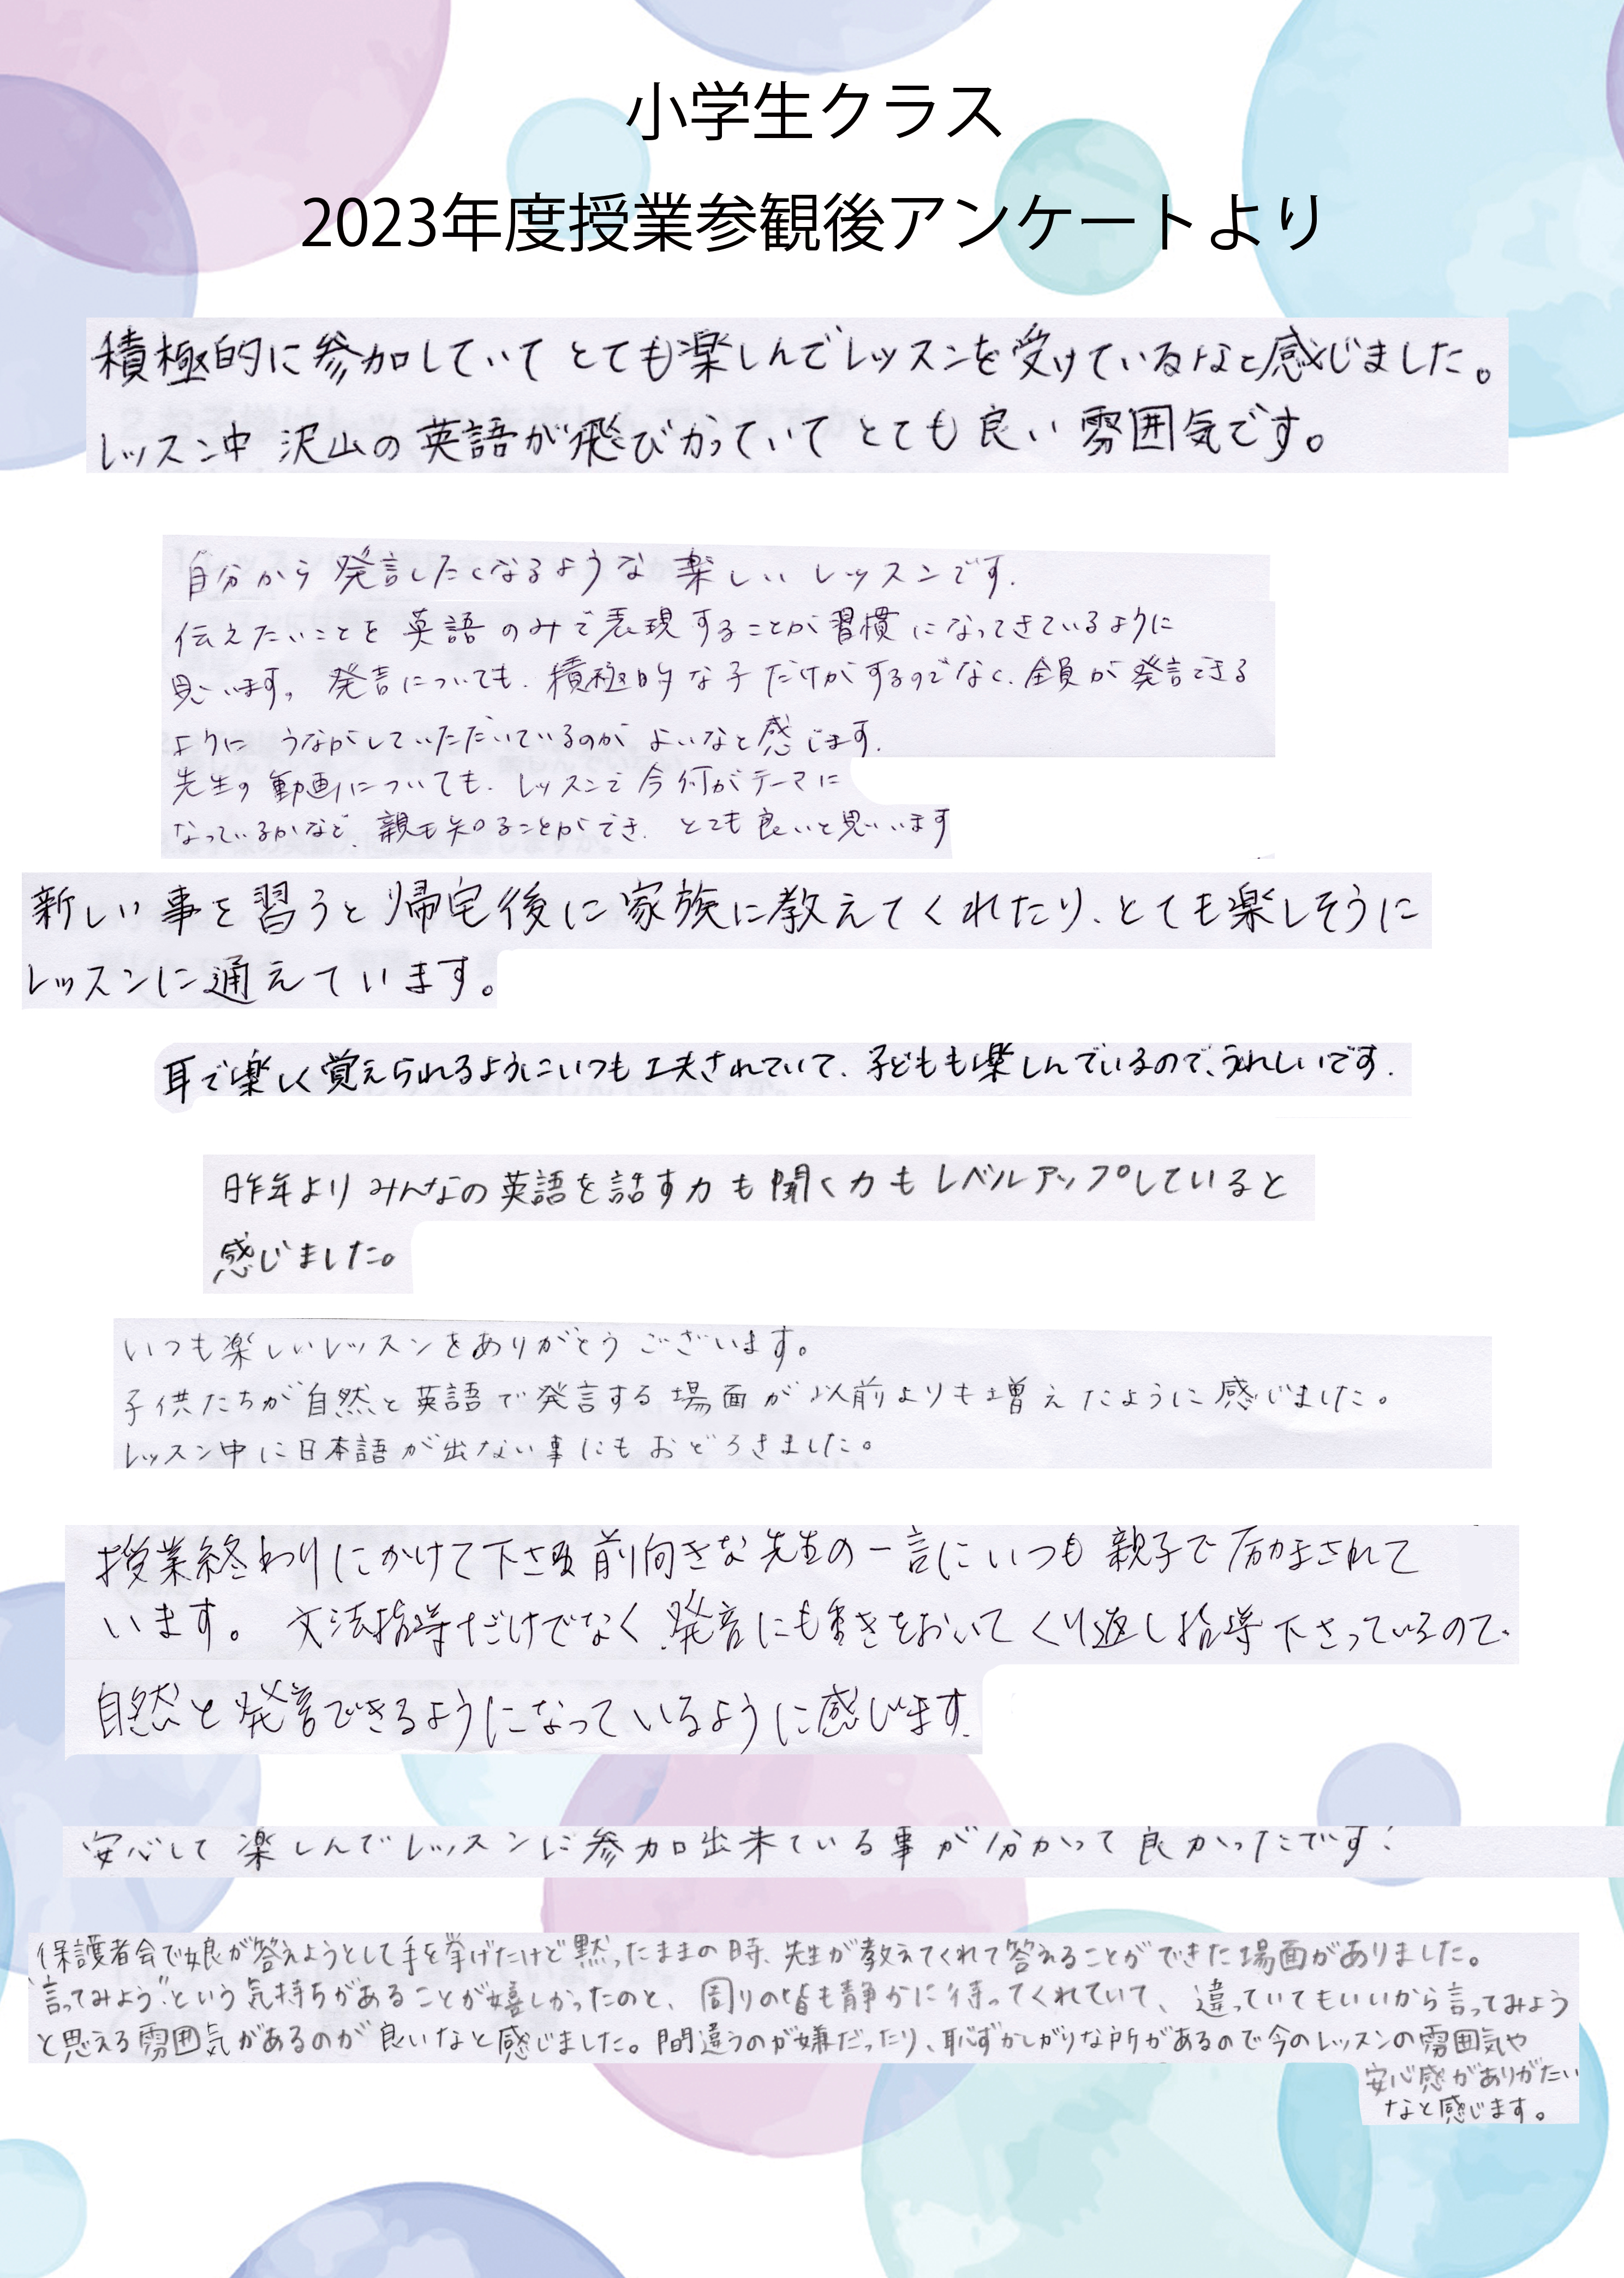 小学生クラス
2023年度授業参観後アンケートより
積極的に参加していて とても楽しんでレッスンを受けているなと感じました。
レッスン中 沢山の英語が飛びかっていて とても良い雰囲気です。
自分から発言したくなるような楽しいレッスンです.
伝えたいことを英語のみで表現することが習慣になってきているように
思います。発言についても、積極的な子だけがするのでなく、全員が発言できる
ように うながしていただいているのが よいなと感じます.
先生の動画についても、レッスンで今何がテーマに
なっているかなど、親も知ることができ、とても良いと思います
新しい事を習うと帰宅後に家族に教えてくれたり、とても楽しそうに
レッスンに通えています。
耳で楽しく覚えられるようにいつも工夫されていて、子どもも楽しんでいるので、うれしいです.
昨年よりみんなの英語を話す力も聞く力もレベルアップしていると
感じました。
いつも楽しいレッスンをありがとうございます。
子供たちが自然と英語で発言する場面が以前よりも増えたように感じました。
レッスン中に日本語が出ない事にもおどろきました。
授業終わりにかけて下さる前向きな先生の一言にいつも親子で励まされて
います。 文法指導だけでなく、発音にも重きをおいてくり返し指導下さっているので、
自然と発音できるようになっているように感じます.
安心して楽しんでレッスンに参加出来ている事が分かって良かったです!
保護者会で娘が答えようとして手を挙げたけど黙ったままの時、先生が教えてくれて答えることができた場面がありました。
"言ってみよう"という気持ちがあることが嬉しかったのと、周りの皆も静かに待ってくれていて、違っていてもいいから言ってみよう
と思える雰囲気があるのが良いなと感じました。間違うのが嫌だったり、恥ずかしがりな所があるので今のレッスンの雰囲気や
安心感がありがたい
なと感じます。